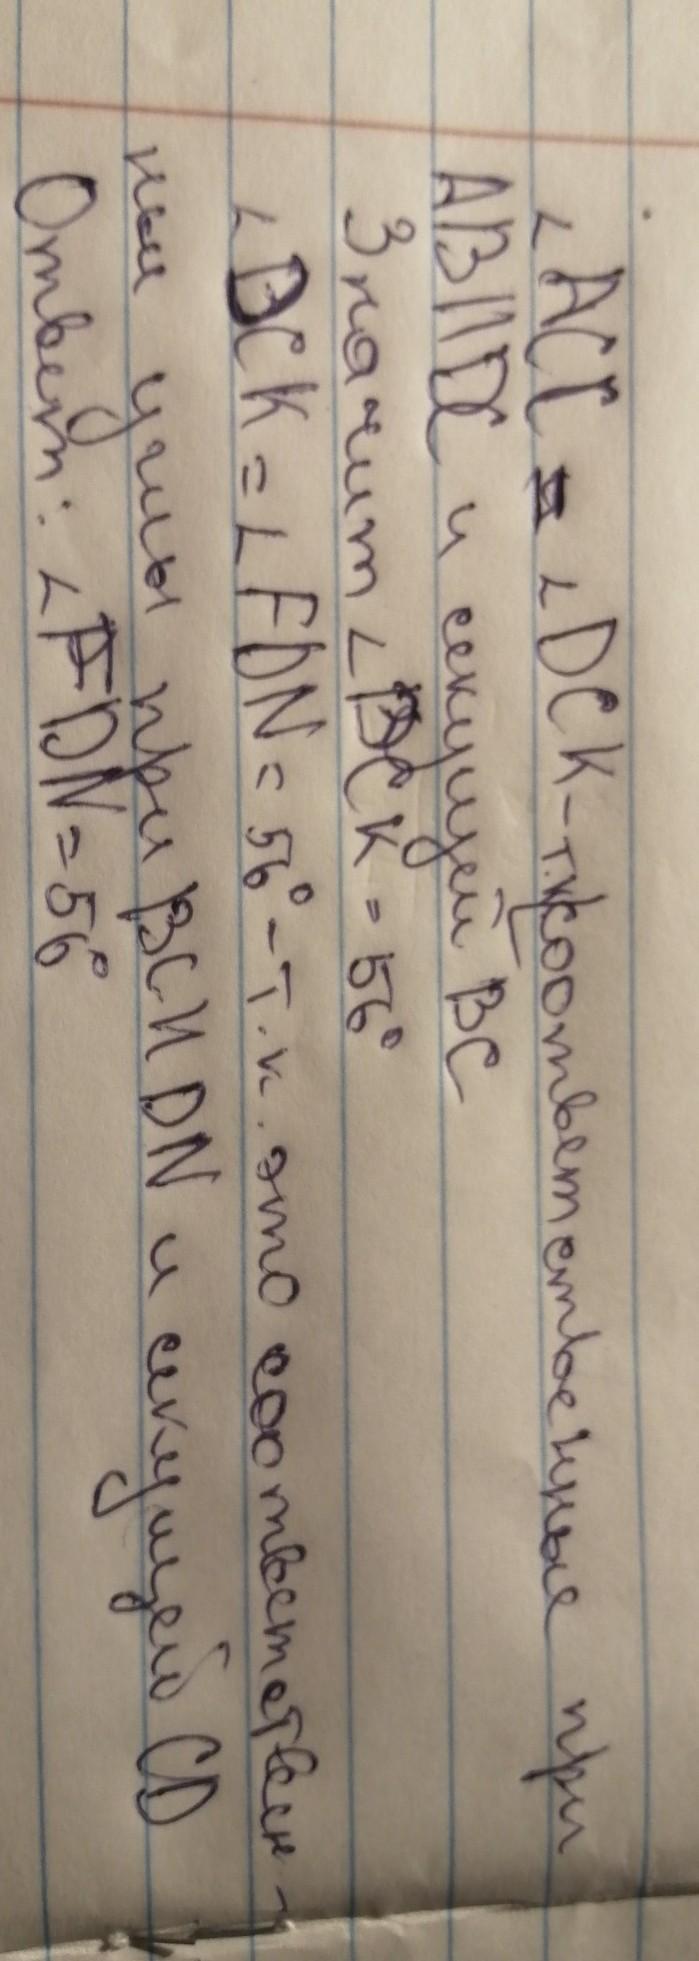 ∠ACC = ∠DCK - т.к соответственные при
AB || DC и секущей BC
Значит ∠DCK = 56°
∠DCK = ∠FDN = 56° - т.к. это соответствен-
ные углы при BC || DN и секущей CD
Ответ: ∠FDN = 56°